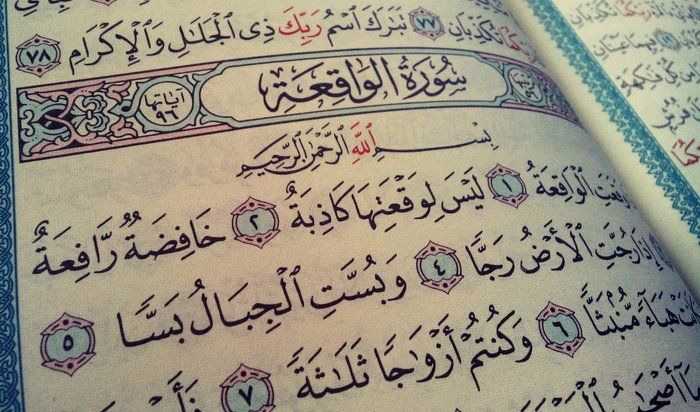 تُكَذِّبَانِ ٧٧ تَبَٰرَكَ ٱسْمُ رَبِّكَ ذِى ٱلْجَلَٰلِ وَٱلْإِكْرَامِ ٧٨
سُورَةُ الوَاقِعَةِ
آيَاتُهَا ٩٦
بِسْمِ ٱللَّهِ ٱلرَّحْمَٰنِ ٱلرَّحِيمِ
ٱلْوَاقِعَةُ ١ لَيْسَ لِوَقْعَتِهَا كَاذِبَةٌ ٢ خَافِضَةٌ رَّافِعَةٌ
إِذَا رُجَّتِ ٱلْأَرْضُ رَجًّا ٤ وَبُسَّتِ ٱلْجِبَالُ بَسًّا ٥
هَبَآءً مُّنۢبَثًّا ٦ وَكُنتُمْ أَزْوَٰجًا ثَلَٰثَةً ٧
مَآ أَصْحَٰبُ